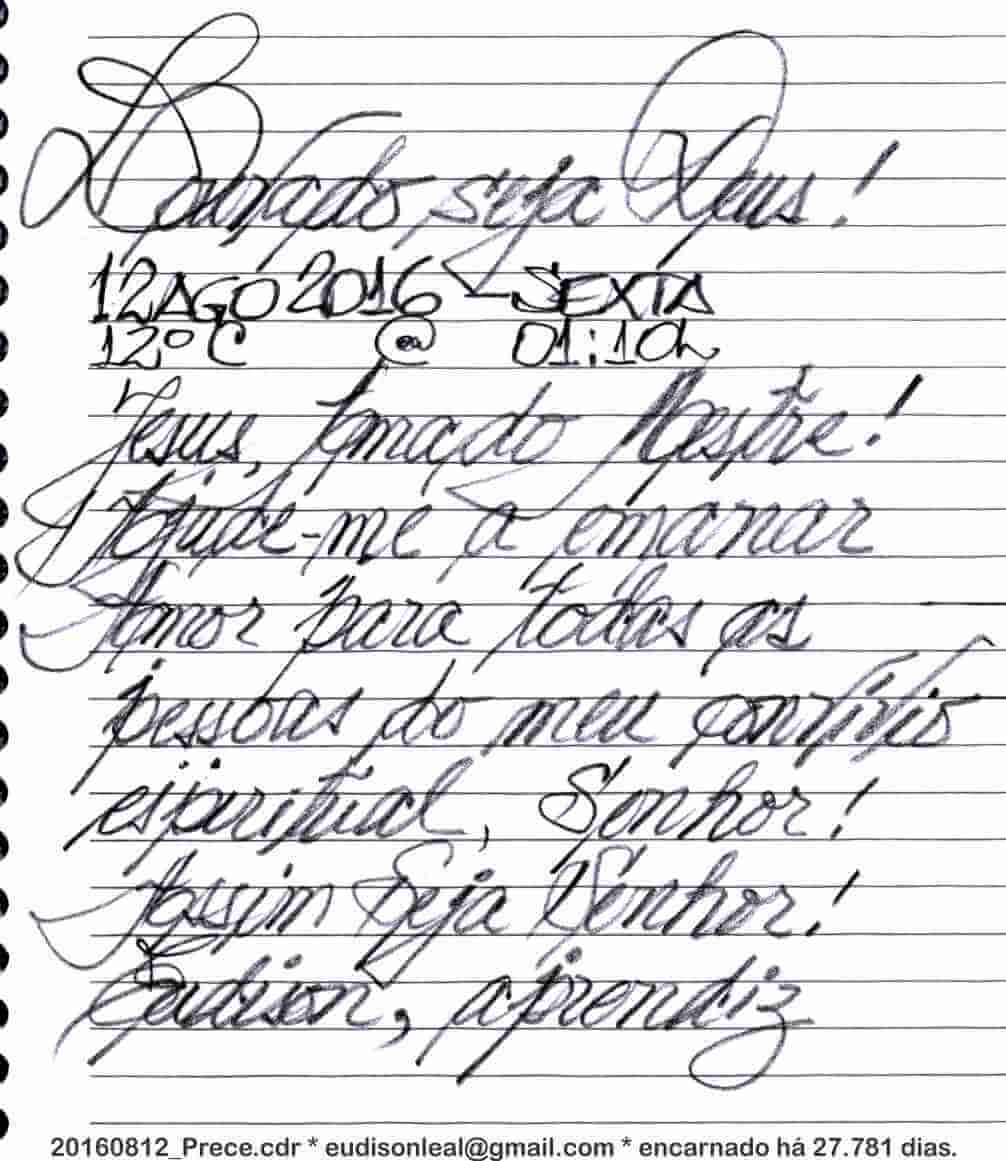 Louvado seja Deus!
12AGO2016 - SEXTA
12ºC @ 01:10h
Jesus, Amado Mestre!
Ajude-me a emanar
Amor para todas as
pessoas do meu convívio
espiritual, Senhor!
Assim Seja Senhor!
Eudison, aprendiz
20160812_Prece.cdr * eudisonleal@gmail.com * encarnado há 27.781 dias.